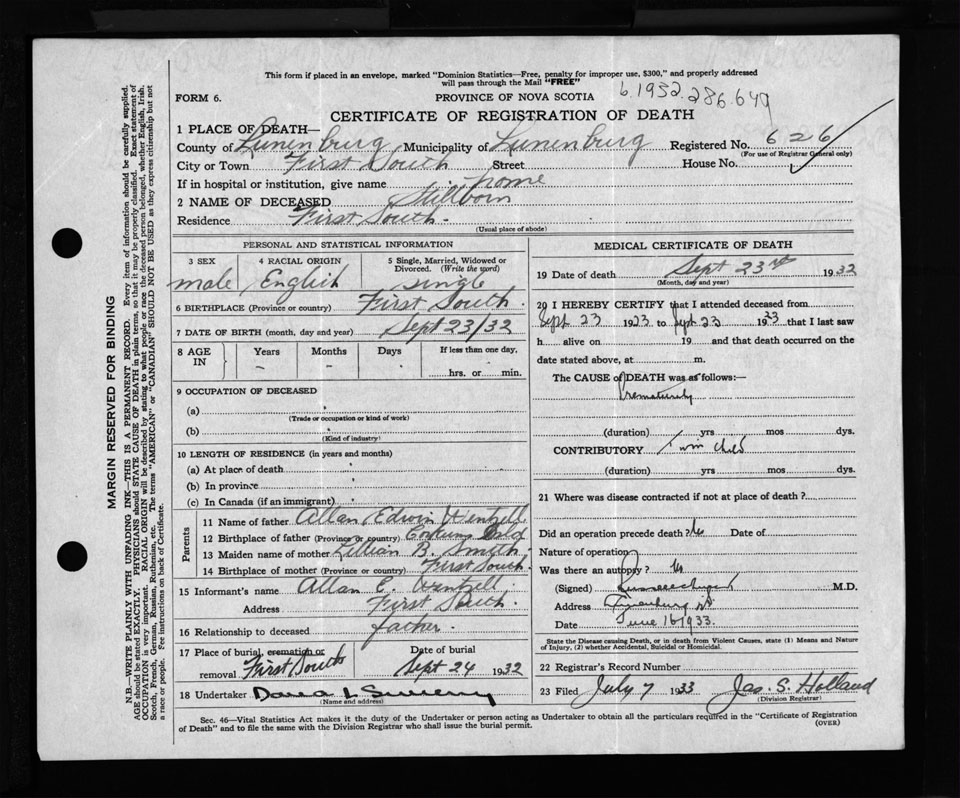 This form if placed in an envelope, marked "Dominion Statistics—Free, penalty for improper use, $300," and properly addressed
will pass through the Mail "FREE"
b. 1932. 286. 649
FORM 6.
PROVINCE OF NOVA SCOTIA
CERTIFICATE OF REGISTRATION OF DEATH
1 PLACE OF DEATH—
County of Lunenburg Municipality of Lunenburg Registered No. 626
(For use of Registrar General only)
City or Town First South Street House No.
If in hospital or institution, give name home
2 NAME OF DECEASED Stillborn
Residence First South.
(Usual place of abode)
PERSONAL AND STATISTICAL INFORMATION
3 SEX 4 RACIAL ORIGIN 5 Single, Married, Widowed or Divorced. (Write the word)
male English single
6 BIRTHPLACE (Province or country) First South.
7 DATE OF BIRTH (month, day and year) Sept 23/32
8 AGE IN Years Months Days If less than one day,
– – – hrs. or min.
9 OCCUPATION OF DECEASED
(a)
(Trade or occupation or kind of work)
(b)
(Kind of industry)
10 LENGTH OF RESIDENCE (in years and months)
(a) At place of death
(b) In province
(c) In Canada (if an immigrant)
Parents
11 Name of father Allan Edwin Wentzell
12 Birthplace of father (Province or country)
13 Maiden name of mother Lillian B. Smith
14 Birthplace of mother (Province or country) First South.
15 Informant's name Allan E. Wentzell
Address First South.
16 Relationship to deceased father.
17 Place of burial, cremation or Date of burial
removal First South Sept 24 1932
18 Undertaker
(Name and address)
MEDICAL CERTIFICATE OF DEATH
19 Date of death Sept 23rd 1932
(Month, day and year)
20 I HEREBY CERTIFY that I attended deceased from
Sept 23 1923 to Sept 23 1923 that I last saw
h alive on 19 and that death occurred on the
date stated above, at m.
The CAUSE of DEATH was as follows:—
Prematurity
(duration) yrs mos dys.
CONTRIBUTORY Twin child
(duration) yrs mos dys.
21 Where was disease contracted if not at place of death?
Did an operation precede death? No Date of
Nature of operation
Was there an autopsy? No
(Signed) M.D.
Address Lunenburg NS
Date June 16 1933.
State the Disease causing Death, or in death from Violent Causes, state (1) Means and Nature
of Injury, (2) whether Accidental, Suicidal or Homicidal.
22 Registrar's Record Number
23 Filed July 7 1933 Jas. S. Holland
(Division Registrar)
Sec. 46—Vital Statistics Act makes it the duty of the Undertaker or person acting as Undertaker to obtain all the particulars required in the "Certificate of Registration
of Death" and to file the same with the Division Registrar who shall issue the burial permit. (OVER)
MARGIN RESERVED FOR BINDING
N.B.—WRITE PLAINLY WITH UNFADING INK—THIS IS A PERMANENT RECORD. Every item of information should be carefully supplied.
AGE should be stated EXACTLY. PHYSICIANS should STATE CAUSE OF DEATH in plain terms, so that it may be properly classified. Exact statement of
OCCUPATION is very important. RACIAL ORIGIN will be described by stating to what people or race the deceased person belonged, whether English, Irish,
Scotch, French, German, Russian, Ruthenian, etc. The terms "AMERICAN" or "CANADIAN" SHOULD NOT BE USED as they express citizenship but not
a race or people. Fee instructions on back of Certificate.